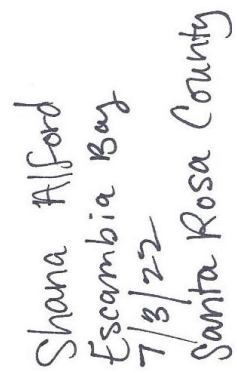 Shana Alford
Escambia Bay
7/3/22
Santa Rosa County